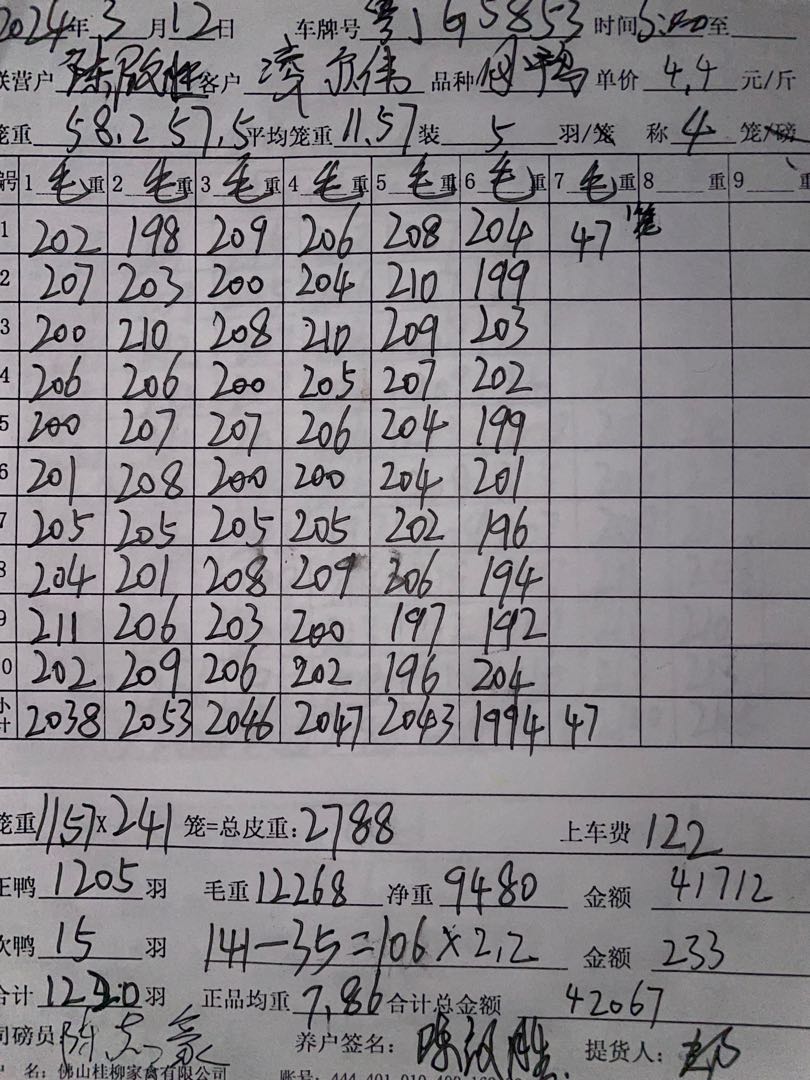 2024年3月12日 车牌号 粤J G5853 时间5:00至
联营户 陈 客户 凌 伟 品种 鸭 单价 4.4 元/斤
笼重 58.2 57.5 平均笼重 11.57 装 5 羽/笼 称 4 笼/磅
编号 1 毛重 2 毛重 3 毛重 4 毛重 5 毛重 6 毛重 7 毛重 8 重 9 重
1 202 198 209 206 208 204 47 1笼
2 207 203 200 204 210 199
3 200 210 208 210 209 203
4 206 206 200 205 207 202
5 200 207 207 206 204 199
6 201 208 200 200 204 201
7 205 205 205 205 202 196
8 204 201 208 209 206 194
9 211 206 203 200 197 192
0 202 209 206 202 196 204
小计 2038 2053 2046 2047 2043 1994 47
笼重 11.57 X 241 笼=总皮重: 2788 上车费 122
正鸭 1205 羽 毛重 12268 净重 9480 金额 41712
次鸭 15 羽 141-35=106×2.2 金额 233
合计 1220 羽 正品均重 7.86 合计总金额 42067
司磅员 养户签名: 提货人:
户 名: 佛山桂柳家禽有限公司 账号: